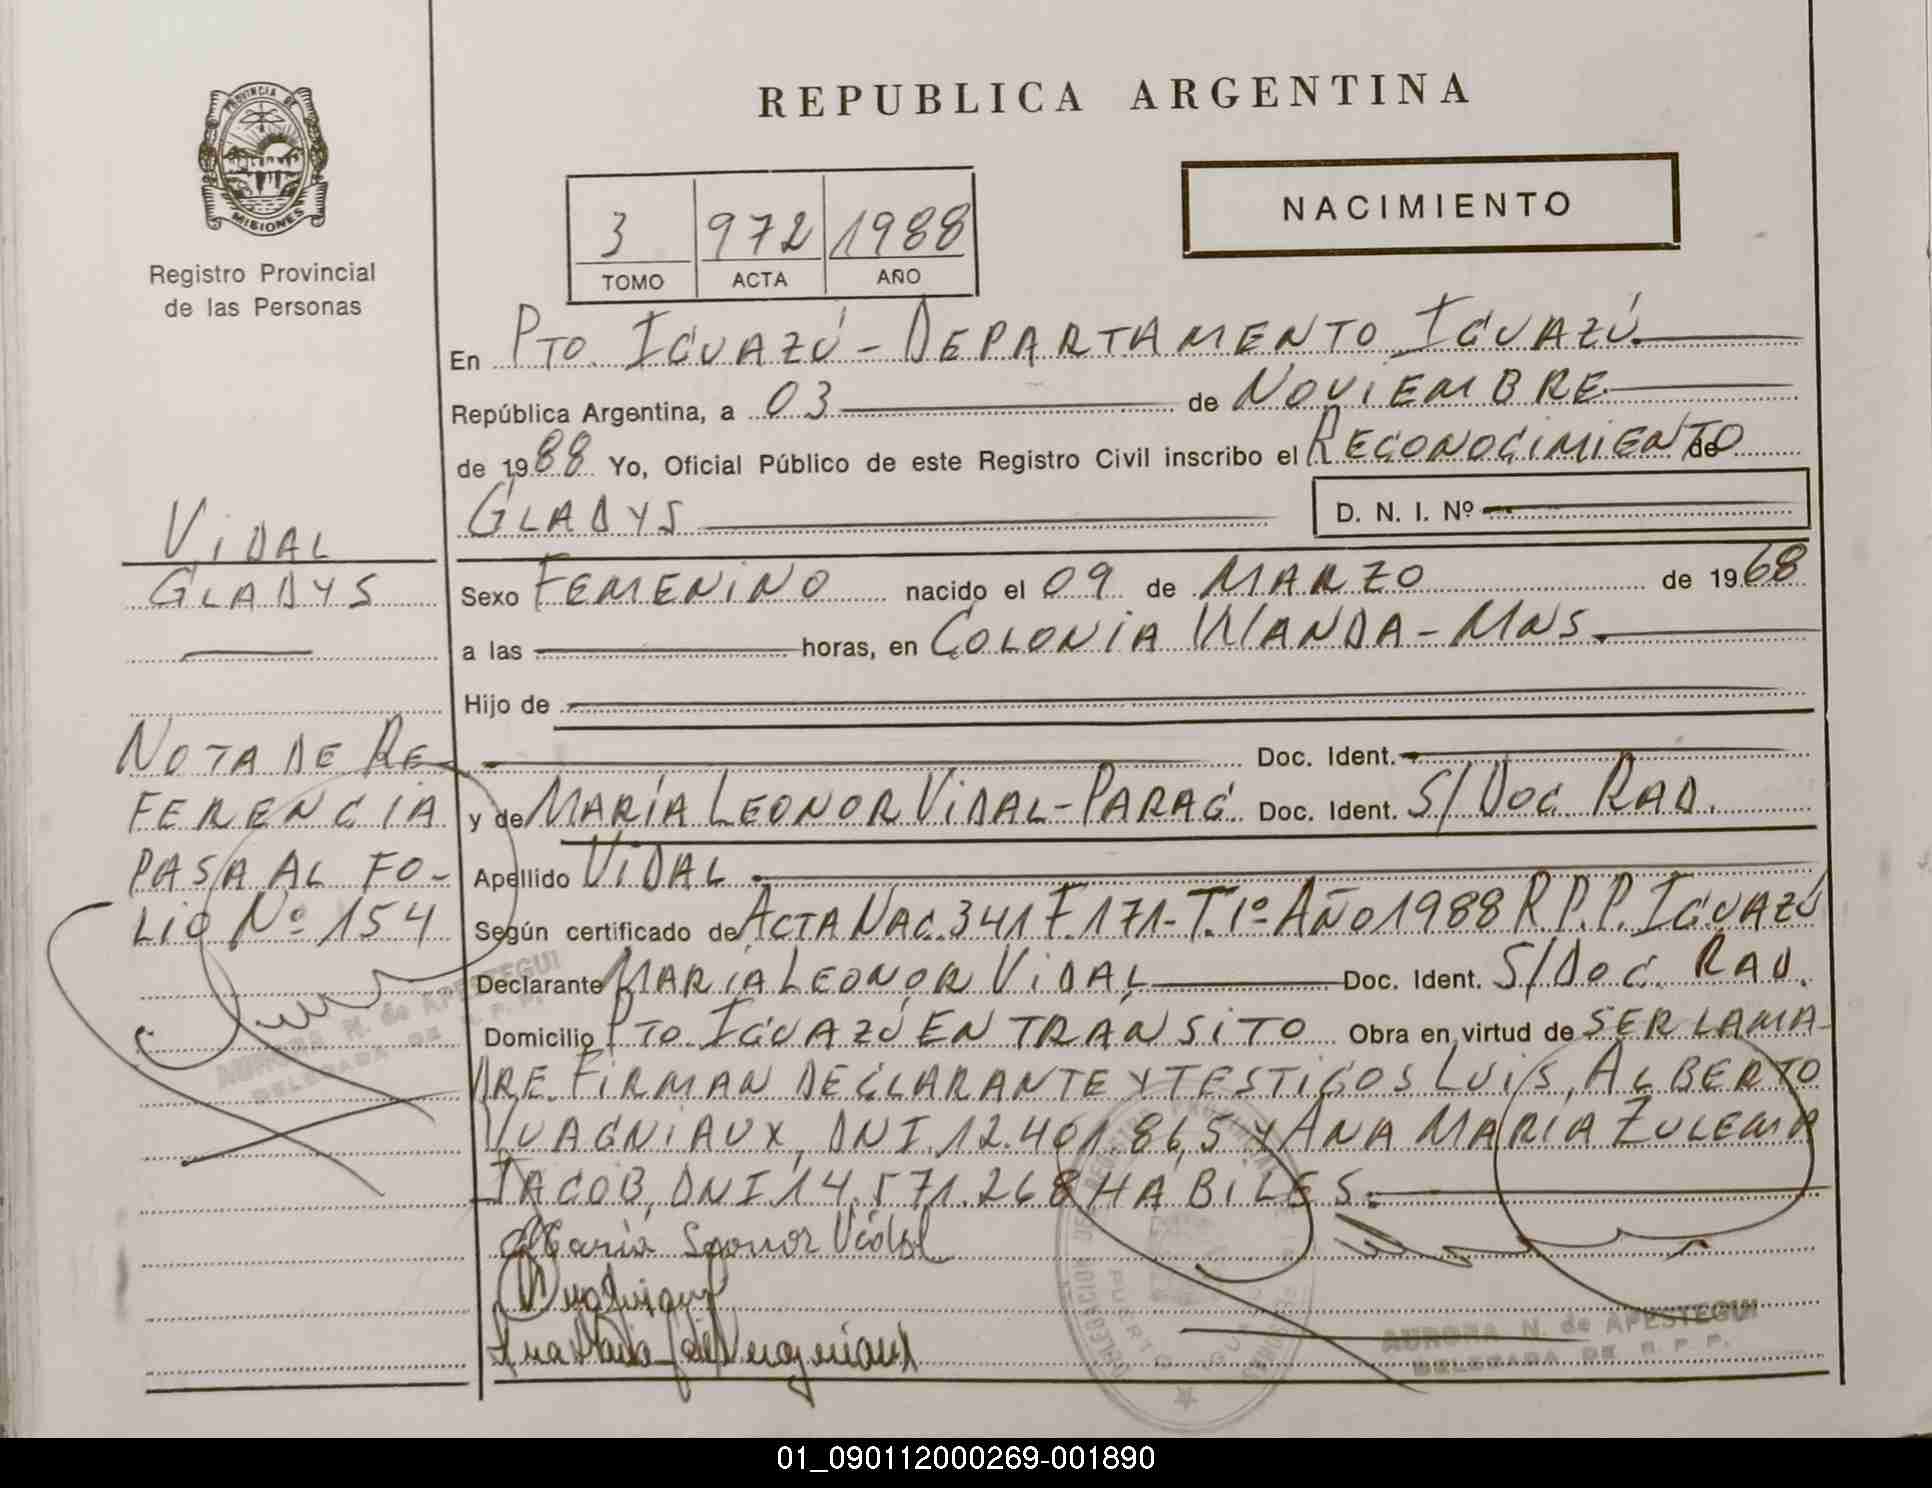 REPUBLICA ARGENTINA
PROVINCIA DE
MISIONES
Registro Provincial
de las Personas
NACIMIENTO
3 972 1988
TOMO ACTA AÑO
En PTO. IGUAZÚ - DEPARTAMENTO IGUAZÚ.
República Argentina, a 03 de NOVIEMBRE.
de 1988 Yo, Oficial Público de este Registro Civil inscribo el RECONOCIMIENTO de
GLADYS D. N. I. Nº
VIDAL
GLADYS
Sexo FEMENINO nacido el 09 de MARZO de 1968
a las horas, en COLONIA WANDA - MNS.
Hijo de
Doc. Ident.
y de MARÍA LEONOR VIDAL - PARAG. Doc. Ident. S/DOC. RAD.
Apellido VIDAL
Según certificado de ACTA NAC. 341 F. 171 - T. 1º AÑO 1988 R.P.P. IGUAZÚ
Declarante MARÍA LEONOR VIDAL Doc. Ident. S/DOC. RAD.
Domicilio PTO. IGUAZÚ EN TRANSITO Obra en virtud de SER LA MA-
DRE. FIRMAN DECLARANTE Y TESTIGOS LUIS ALBERTO
VUAGNIAUX, DNI. 12.401.865 Y ANA MARÍA ZULEMA
JACOB, DNI 14.571.268 HÁBILES.
NOTA DE RE-
FERENCIA
PASA AL FO-
LIO Nº 154
AURORA N. de APESTEGUI
DELEGADA DE R. P. P.
María Leonor Vidal
AURORA N. de APESTEGUI
DELEGADA DE R. P. P.
01_090112000269-001890